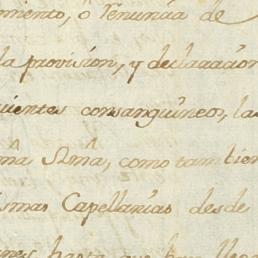 miento, ô renuncia de
la provision, y declaracion
uientes consanguineo, la
mâ Rmâ, como tambien
smas Capellanias desde
nes hasta que